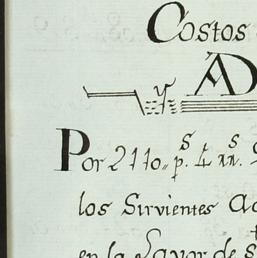 Costos
y AD
Por 2110,, p.s 4 rr.s
los Sirvientes
en la Lavor de